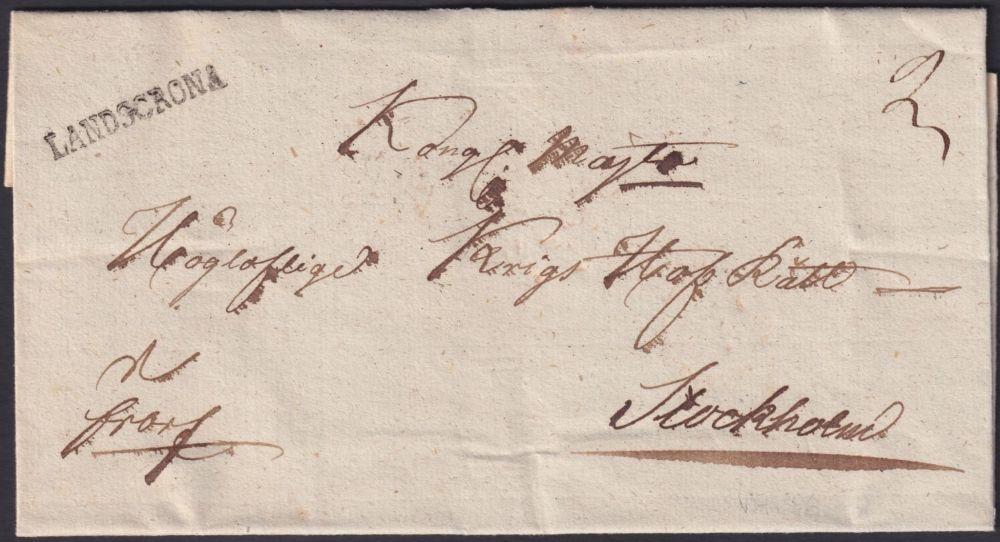 LANDSCRONA
2
Kongl. Majts
Högloflige Krigs Hof Rätt
Stockholm